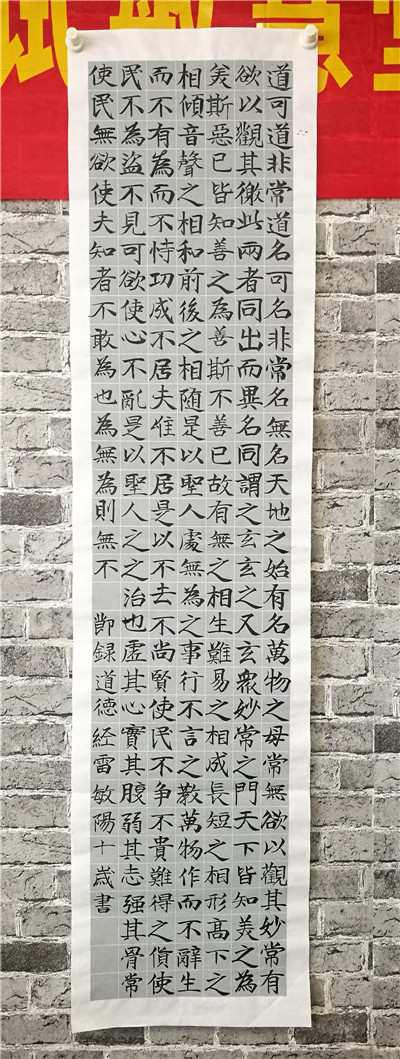 道可道非常道名可名非常名無名天地之始有名萬物之母常無欲以觀其妙常有
欲以觀其徼此兩者同出而異名同謂之玄玄之又玄衆妙常之門天下皆知美之為
美斯惡已皆知善之為善斯不善已故有無之相生難易之相成長短之相形高下之
相傾音聲之相和前後之相隨是以聖人處無為之事行不言之教萬物作而不辭生
而不有為而不恃功成不居夫惟不居是以不去不尚賢使民不爭不貴難得之貨使
民不為盜不見可欲使心不亂是以聖人之之治也虛其心實其腹弱其志强其骨常
使民無欲使夫知者不敢為也為無為則無不 節録道德經雷敏陽十歲書